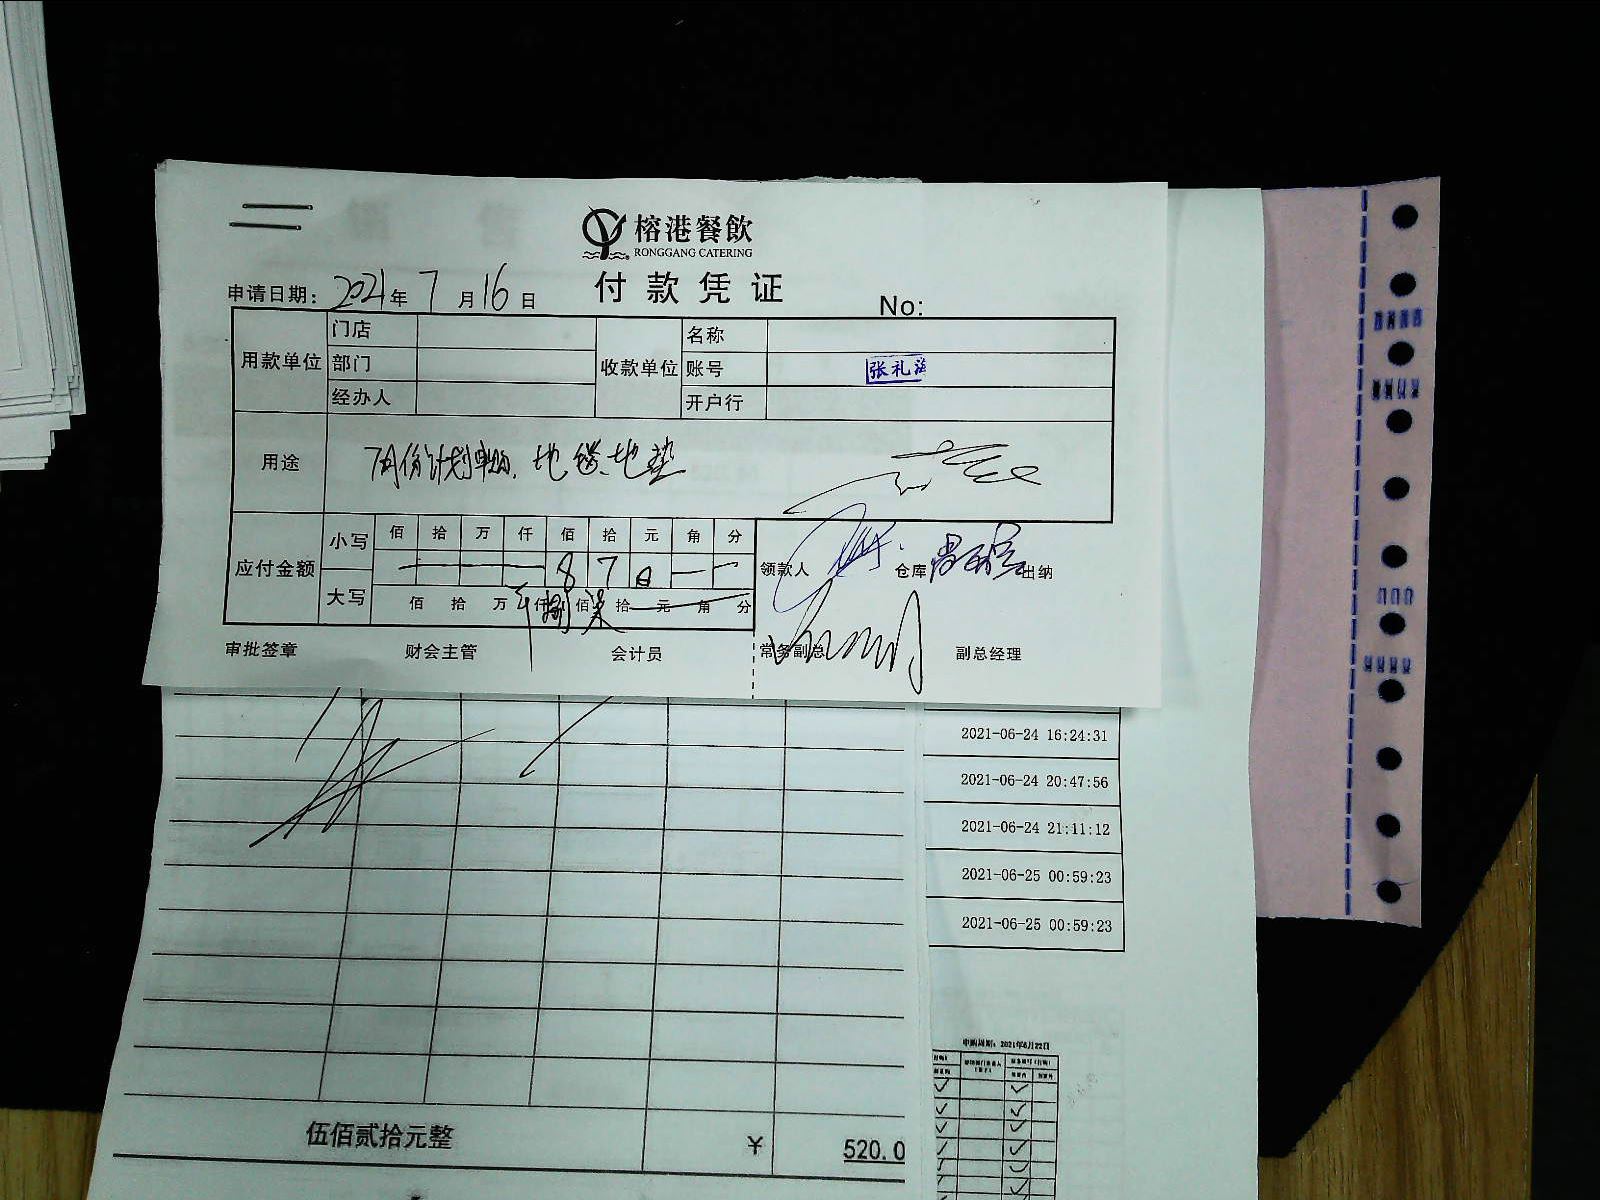 榕港餐飲
RONGGANG CATERING
付款凭证
申请日期: 2021年7月16日 No:
用款单位 门店 收款单位 名称
部门 账号 张礼
经办人 开户行
用途 7月份计划申购、地毯、地垫
应付金额 小写 佰 拾 万 仟 佰 拾 元 角 分
8 7 0
领款人 仓库 出纳
大写 佰 拾 万 仟 捌 佰 柒 拾 元 角 分
审批签章 财会主管 会计员 常务副总 副总经理
2021-06-24 16:24:31
2021-06-24 20:47:56
2021-06-24 21:11:12
2021-06-25 00:59:23
2021-06-25 00:59:23
申购周期: 2021年6月22日
伍佰贰拾元整 ¥ 520.0